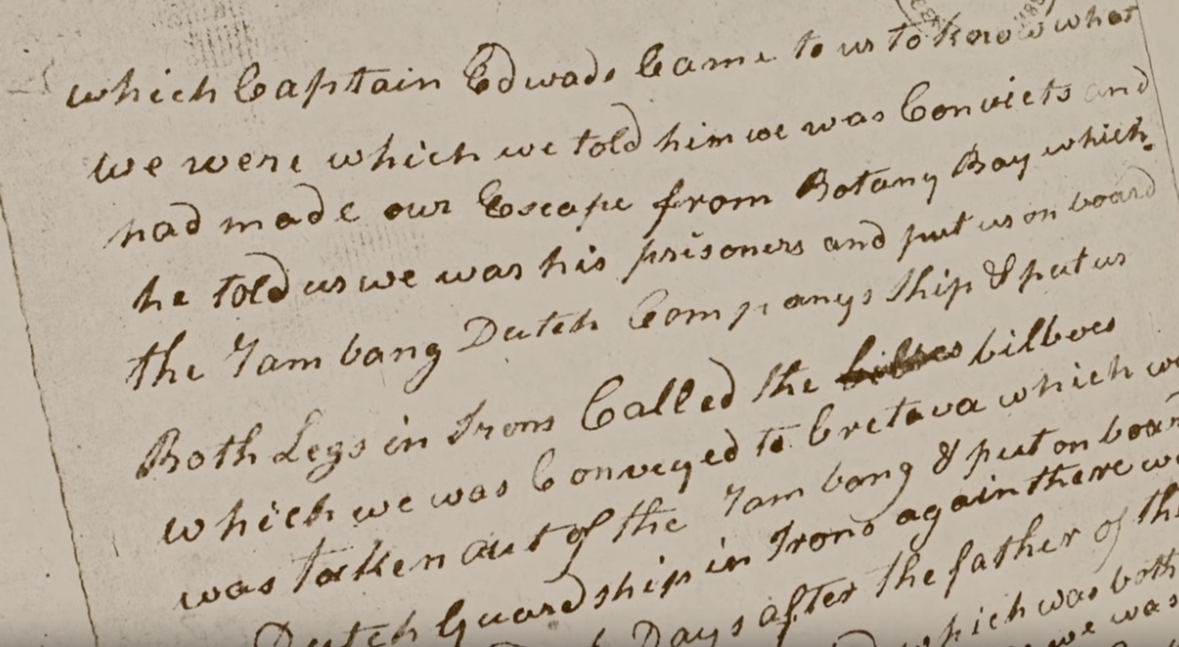 which Captain Edwads Came to us to know what
we were which we told him we was Convicts and
had made our Escape from Botany Bay which
he told us we was his prisoners and put us on board
the Tambang Dutch Companys Ship & put us
Both Legs in Irons Called the bilboes
which we was Conveyed to Cretava which we
was taken out of the Tambang & put on board
Dutch Guard ship in Irons again there we
Days after the father of the
which was both
we was